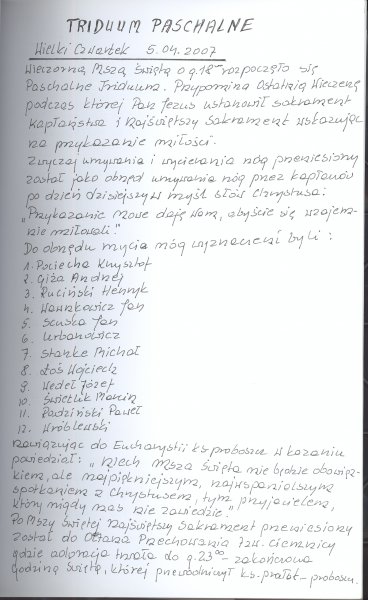 TRIDUUM PASCHALNE
Wielki Czwartek 5.04.2007
Wieczorną Mszą Świętą o g.18⁰⁰ rozpoczęło się
Paschalne Triduum. Przypomina Ostatnią Wieczerzę
podczas której Pan Jezus ustanowił sakrament
Kapłaństwa i Najświętszy Sakrament wskazując
na przykazanie miłości.
Zwyczaj umywania i wycierania nóg przeniesiony
został jako obrzęd umywania nóg przez kapłanów
po dzień dzisiejszy w myśl słów Chrystusa:
"Przykazanie Nowe daję Wam, abyście się wzajem-
nie miłowali."
Do obrzędu mycia nóg wyznaczeni byli:
1. Pociecha Krzysztof
2. Giża Andrzej
3. Ruciński Henryk
4. Wawrkowicz Jan
5. Scuska Jan
6. Urbanowicz
7. Stanke Michał
8. Łoś Wojciech
9. Wedeł Józef
10. Świetlik Marcin
11. Radziński Paweł
12. Wróblewski
Nawiązując do Eucharystii ks. proboszcz w kazaniu
powiedział: "Niech Msza Święta nie będzie obowiąz-
kiem, ale najpiękniejszym, najwspanialszym
spotkaniem z Chrystusem, tym przyjacielem,
który nigdy nas nie zawiedzie."
Po Mszy Świętej Najświętszy Sakrament przeniesiony
został do Ołtarza Przechowania tzw. Ciemnicy
gdzie adoracja trwała do g.23⁰⁰ - zakończona
Godziną Świętą, której przewodniczył ks. prałat - proboszcz.